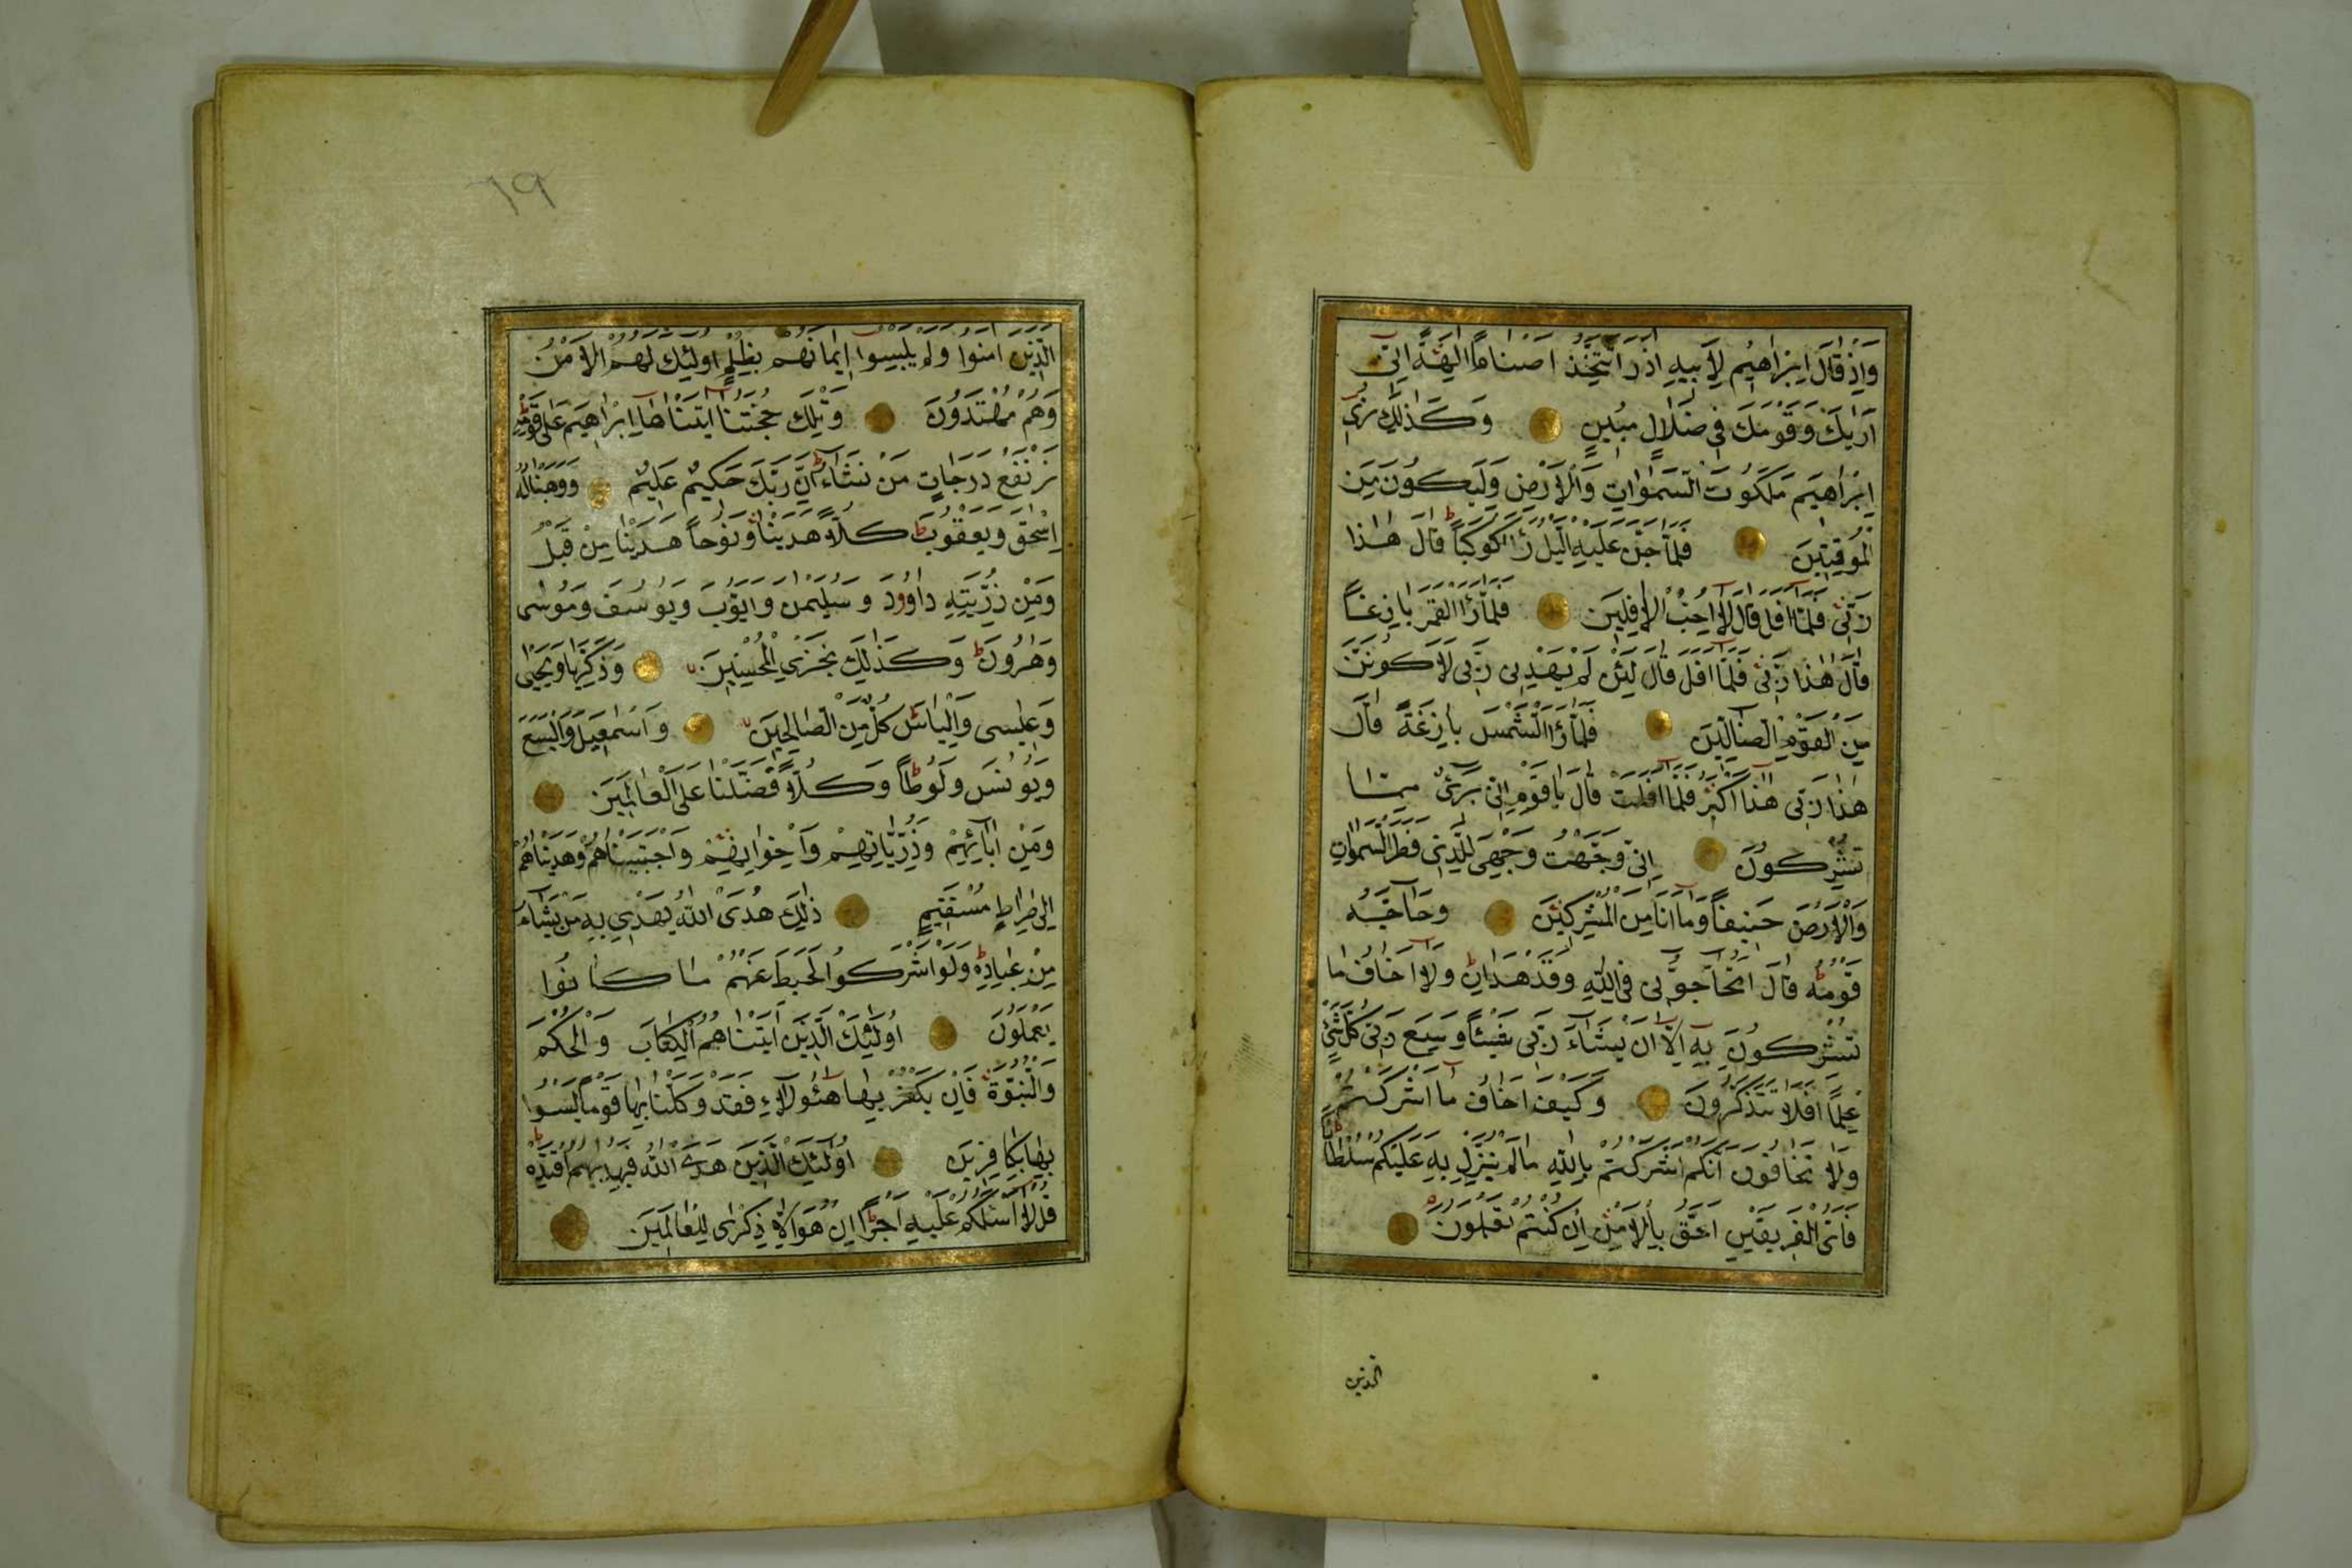 وَاِذْ قَالَ اِبْرٰاهِيمُ لِاَبِيهِ اٰزَرَ اَتَتَّخِذُ اَصْنَاماً اٰلِهَةً اِنّٓى
اَرٰيكَ وَقَوْمَكَ فِى ضَلَالٍ مُبِينٍ وَكَذٰلِكَ نُرِى
اِبْرٰاهِيمَ مَلَكُوتَ السَّمٰوَاتِ وَالْاَرْضِ وَلِيَكُونَ مِنَ
الْمُوقِنِينَ فَلَمَّا جَنَّ عَلَيْهِ الَّيْلُ رَاٰ كَوْكَباً قَالَ هٰذَا
رَبِّى فَلَمَّا اَفَلَ قَالَ لَا اُحِبُّ الْاٰفِلِينَ فَلَمَّا رَاَ الْقَمَرَ بَازِغاً
قَالَ هٰذَا رَبِّى فَلَمَّا اَفَلَ قَالَ لَئِنْ لَمْ يَهْدِنِى رَبِّى لَاَكُونَنَّ
مِنَ الْقَوْمِ الضَّالِّينَ فَلَمَّا رَاَ الشَّمْسَ بَازِغَةً قَالَ
هٰذَا رَبِّى هٰذَا اَكْبَرُ فَلَمَّا اَفَلَتْ قَالَ يَا قَوْمِ اِنِّى بَرِىءٌ مِمَّا
تُشْرِكُونَ اِنِّى وَجَّهْتُ وَجْهِىَ لِلَّذِى فَطَرَ السَّمٰوَاتِ
وَالْاَرْضَ حَنِيفاً وَمَا اَنَا مِنَ الْمُشْرِكِينَ وَحَاجَّهُ
قَوْمُهُ قَالَ اَتُحَاجُّوٓنِّى فِى اللّٰهِ وَقَدْ هَدَانِ وَلَا اَخَافُ مَا
تُشْرِكُونَ بِهِ اِلَّا اَنْ يَشَاءَ رَبِّى شَيْئاً وَسِعَ رَبِّى كُلَّ شَىْءٍ
عِلْماً اَفَلَا تَتَذَكَّرُونَ وَكَيْفَ اَخَافُ مَا اَشْرَكْتُمْ
وَلَا تَخَافُونَ اَنَّكُمْ اَشْرَكْتُمْ بِاللّٰهِ مَا لَمْ يُنَزِّلْ بِهِ عَلَيْكُمْ سُلْطَاناً
فَاَىُّ الْفَرِيقَيْنِ اَحَقُّ بِالْاَمْنِ اِنْ كُنْتُمْ تَعْلَمُونَ
الذين
٦٩
الَّذِينَ اٰمَنُوا وَلَمْ يَلْبِسُوا اِيمَانَهُمْ بِظُلْمٍ اُولٰئِكَ لَهُمُ الْاَمْنُ
وَهُمْ مُهْتَدُونَ وَتِلْكَ حُجَّتُنَا اٰتَيْنَاهَا اِبْرٰاهِيمَ عَلَى قَوْمِهِ
نَرْفَعُ دَرَجَاتٍ مَنْ نَشَاءُ اِنَّ رَبَّكَ حَكِيمٌ عَلِيمٌ وَوَهَبْنَا لَهُ
اِسْحٰقَ وَيَعْقُوبَ كُلّاً هَدَيْنَا وَنُوحاً هَدَيْنَا مِنْ قَبْلُ
وَمِنْ ذُرِّيَّتِهِ دَاوُودَ وَسُلَيْمٰنَ وَاَيُّوبَ وَيُوسُفَ وَمُوسٰى
وَهٰرُونَ وَكَذٰلِكَ نَجْزِى الْمُحْسِنِينَ وَزَكَرِيَّا وَيَحْيٰى
وَعِيسٰى وَاِلْيَاسَ كُلٌّ مِنَ الصَّالِحِينَ وَاِسْمٰعِيلَ وَالْيَسَعَ
وَيُونُسَ وَلُوطاً وَكُلّاً فَضَّلْنَا عَلَى الْعَالَمِينَ
وَمِنْ اٰبَائِهِمْ وَذُرِّيَّاتِهِمْ وَاِخْوَانِهِمْ وَاجْتَبَيْنَاهُمْ وَهَدَيْنَاهُمْ
اِلٰى صِرَاطٍ مُسْتَقِيمٍ ذٰلِكَ هُدَى اللّٰهِ يَهْدِى بِهِ مَنْ يَشَاءُ
مِنْ عِبَادِهِ وَلَوْ اَشْرَكُوا لَحَبِطَ عَنْهُمْ مَا كَانُوا
يَعْمَلُونَ اُولٰئِكَ الَّذِينَ اٰتَيْنَاهُمُ الْكِتَابَ وَالْحُكْمَ
وَالنُّبُوَّةَ فَاِنْ يَكْفُرْ بِهَا هٰؤُلَاءِ فَقَدْ وَكَّلْنَا بِهَا قَوْماً لَيْسُوا
بِهَا بِكَافِرِينَ اُولٰئِكَ الَّذِينَ هَدَى اللّٰهُ فَبِهُدٰيهُمُ اقْتَدِهْ
قُلْ لَا اَسْئَلُكُمْ عَلَيْهِ اَجْراً اِنْ هُوَ اِلَّا ذِكْرٰى لِلْعَالَمِينَ